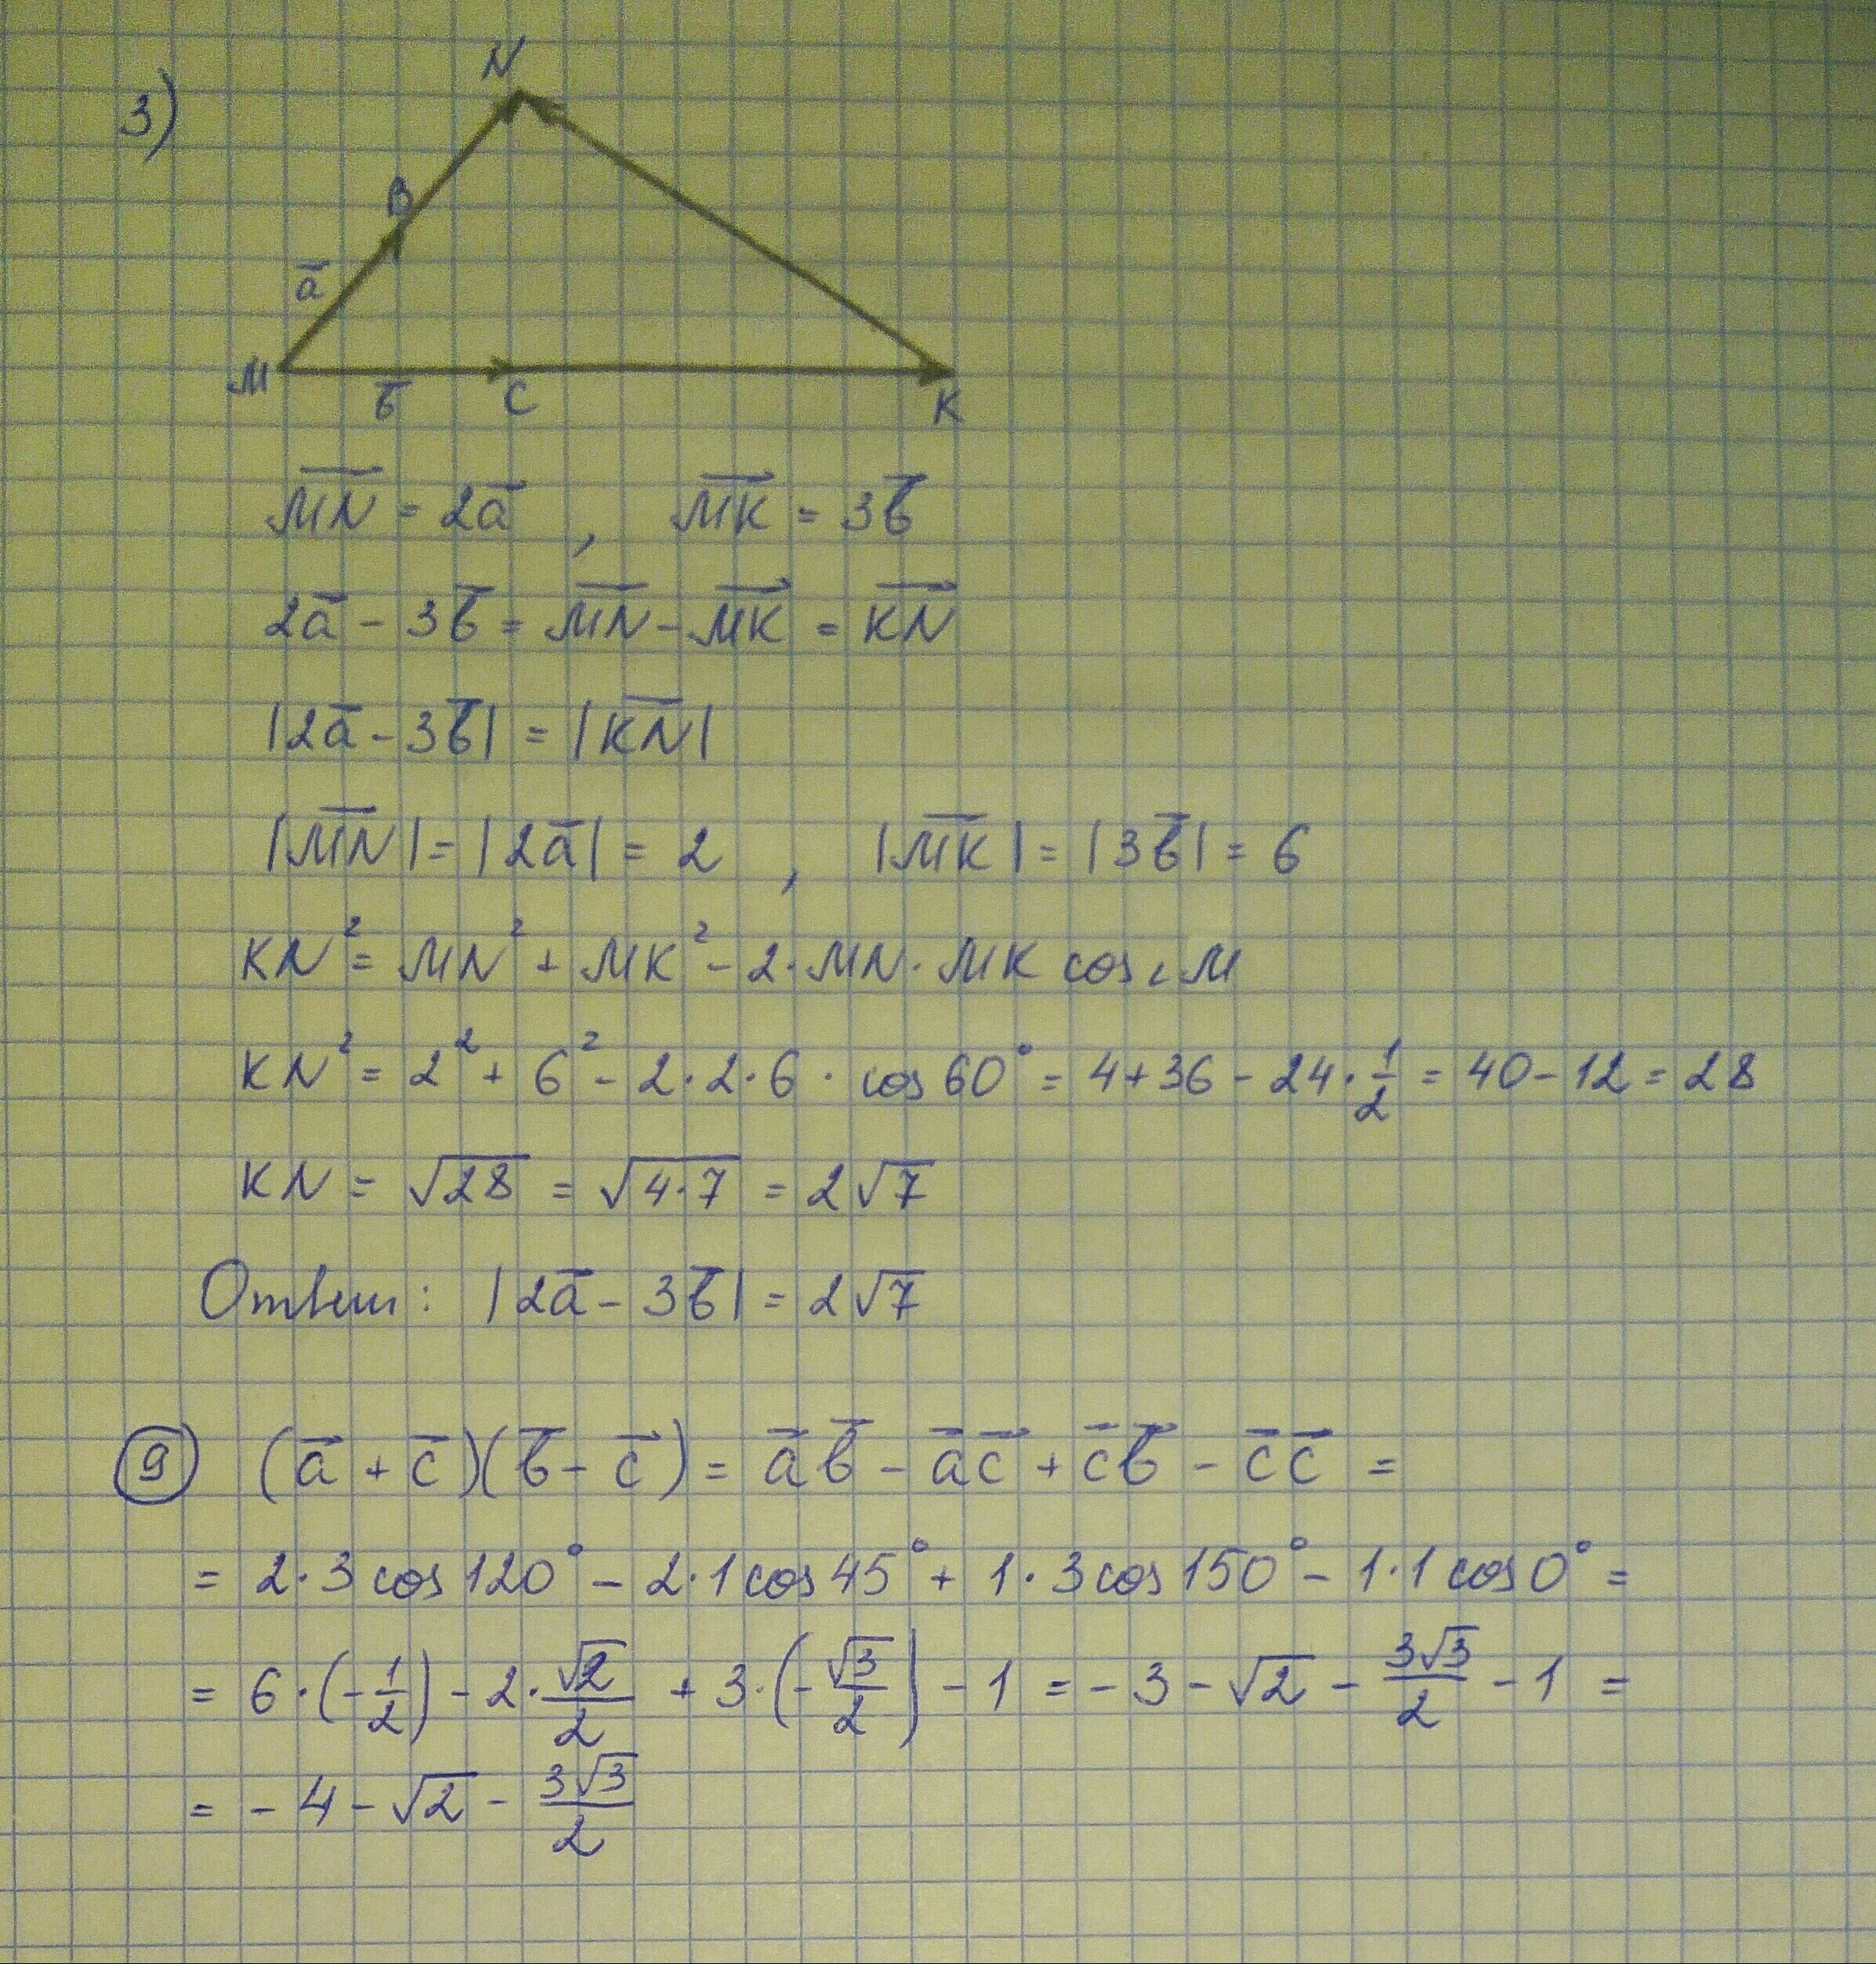 3)
N
B
a̅
M
b̅
C
K
M̅N̅ = 2a̅ , M̅K̅ = 3b̅
2a̅ - 3b̅ = M̅N̅ - M̅K̅ = K̅N̅
|2a̅ - 3b̅| = |K̅N̅|
|M̅N̅| = |2a̅| = 2 , |M̅K̅| = |3b̅| = 6
KN² = MN² + MK² - 2·MN·MK cos∠M
KN² = 2² + 6² - 2·2·6·cos60° = 4+36 - 24·1/2 = 40 - 12 = 28
KN = √28 = √4·7 = 2√7
Ответ: |2a̅ - 3b̅| = 2√7
9) (a̅ + c̅)(b̅ - c̅) = a̅b̅ - a̅c̅ + c̅b̅ - c̅c̅ =
= 2·3cos120° - 2·1cos45° + 1·3cos150° - 1·1cos0° =
= 6·(-1/2) - 2·√2/2 + 3·(-√3/2) - 1 = -3 - √2 - 3√3/2 - 1 =
= -4 - √2 - 3√3/2